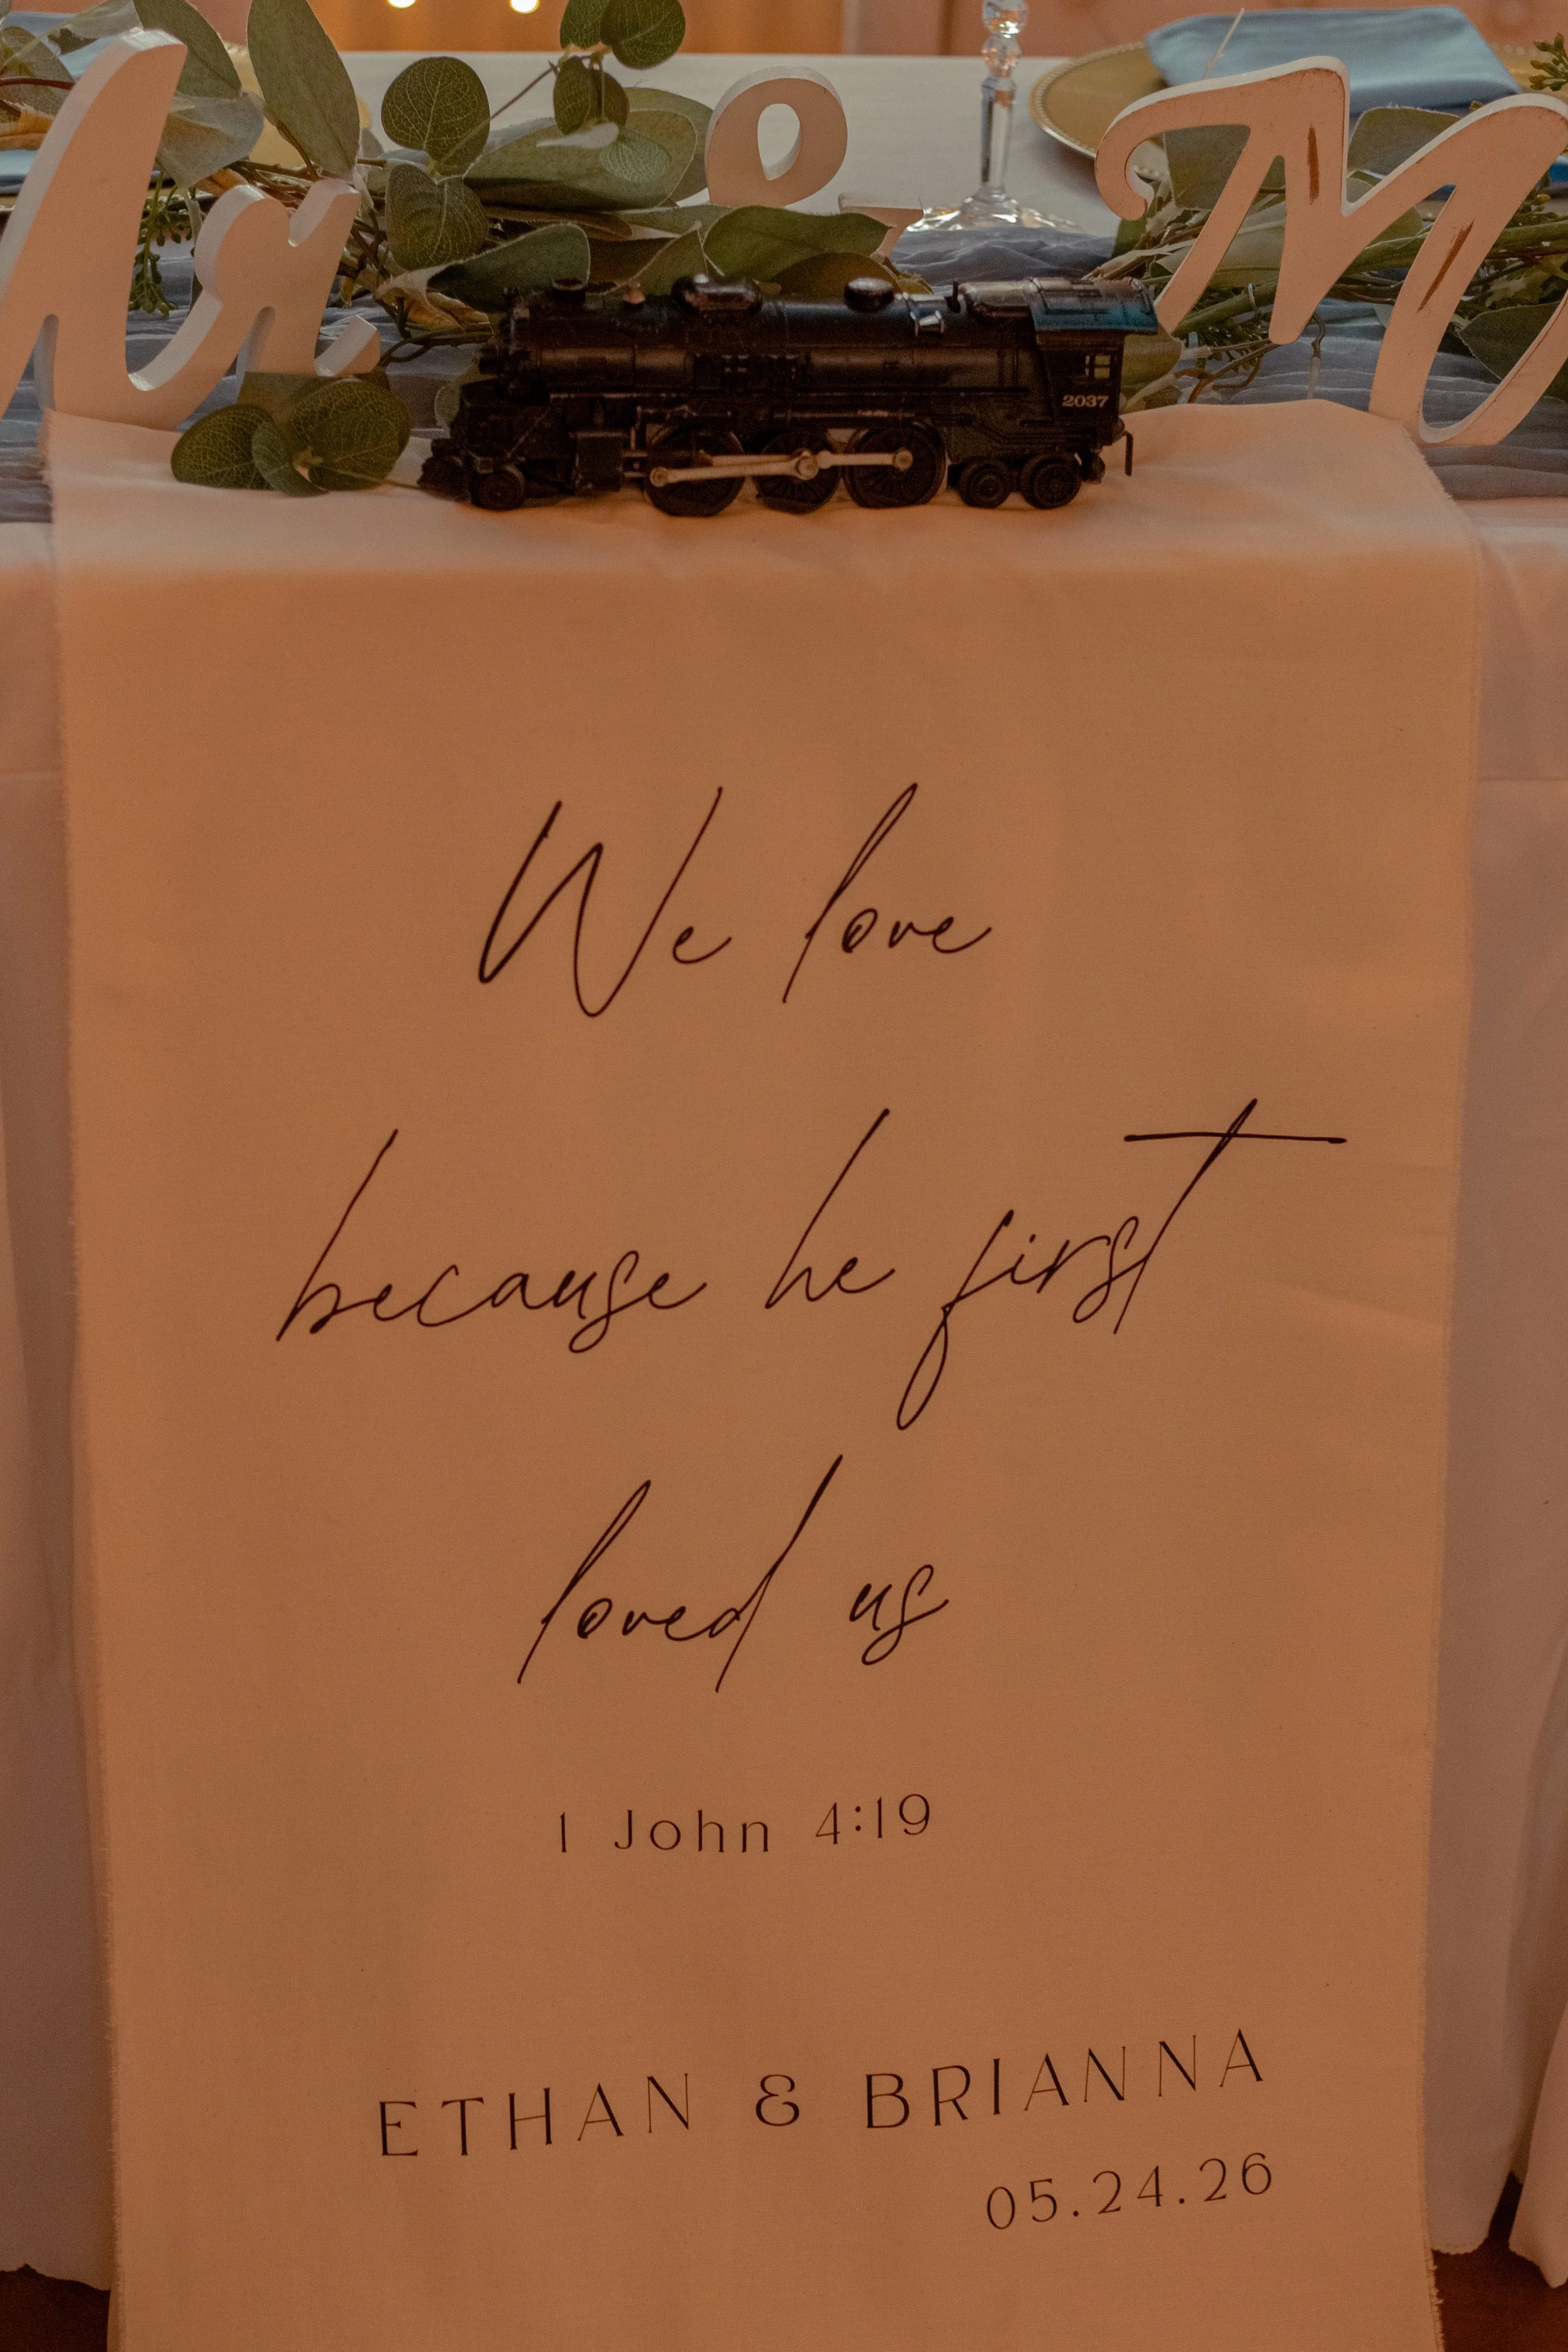 Mr & M
2037
We love
because he first
loved us
1 John 4:19
ETHAN & BRIANNA
05.24.26